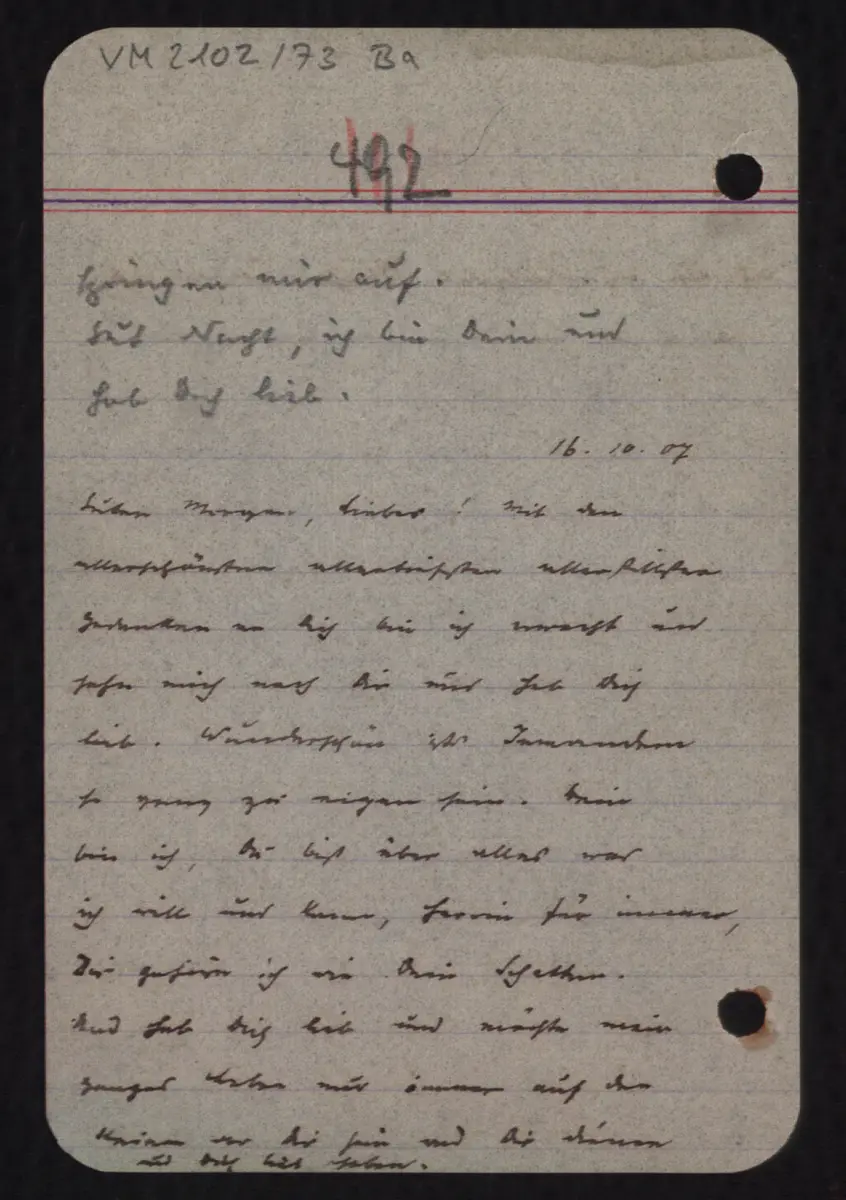 VM 2102/73 Ba
492
springen mir auf.
Gut Nacht, ich bin Dein und
hab Dich lieb.
16. 10. 07
Guten Morgen, Liebes! Mit den
allerschönsten allertiefsten allerstillsten
Gedanken an Dich bin ich erwacht und
sehn mich nach Dir und hab Dich
lieb. Wunderschön ists Jemandem
so ganz zu eigen sein. Dein
bin ich, Du bist über alles was
ich will und kann, Herrin für immer,
Dir gehöre ich wie Dein Schatten.
Und hab Dich lieb und möchte mein
ganzes Leben nur immer auf den
Knieen vor Dir sein und Dir dienen
und Dich lieb haben.